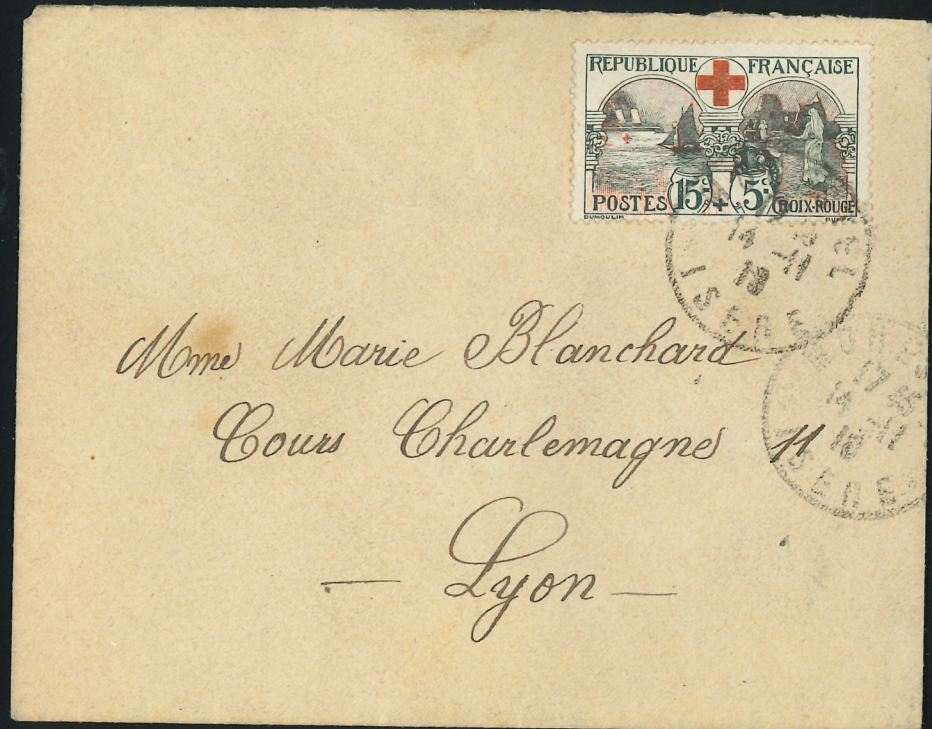 REPUBLIQUE FRANÇAISE
POSTES 15c + 5c CROIX-ROUGE
DUMOULIN
14 -11
18
ISERE
Mme Marie Blanchard
17 45
14 -11
18
ISERE
Cours Charlemagne 11
— Lyon —